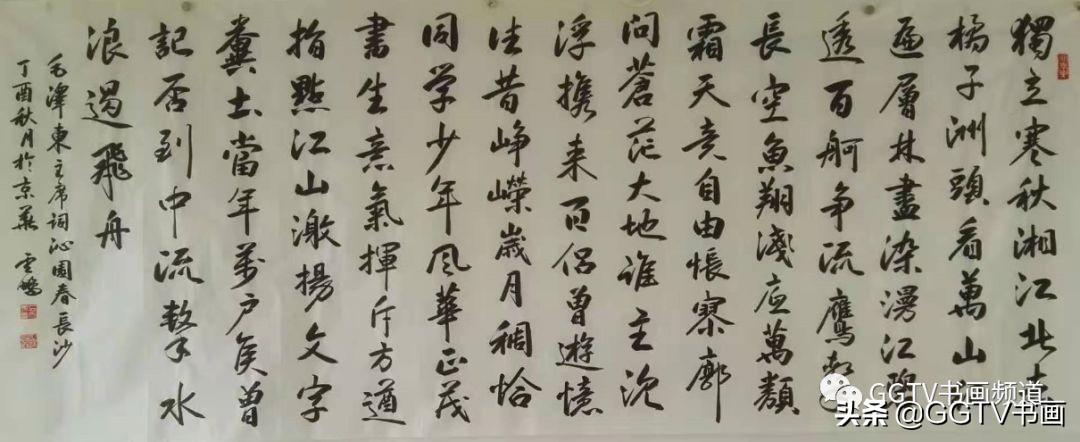 獨立寒秋湘江北去
橘子洲頭看萬山
遍層林盡染漫江碧
透百舸争流鷹擊
長空魚翔淺底萬類
霜天竞自由悵寥廓
问蒼茫大地誰主沉
浮携来百侣曾遊憶
往昔崢嶸歲月稠恰
同学少年风華正茂
書生意氣揮斥方遒
指點江山激揚文字
糞土當年萬户侯曾
記否到中流擊水
浪遏飛舟
毛澤東主席詞沁園春長沙
丁酉秋月於京華雲鵬
GGTV书画频道
头条@GGTV书画